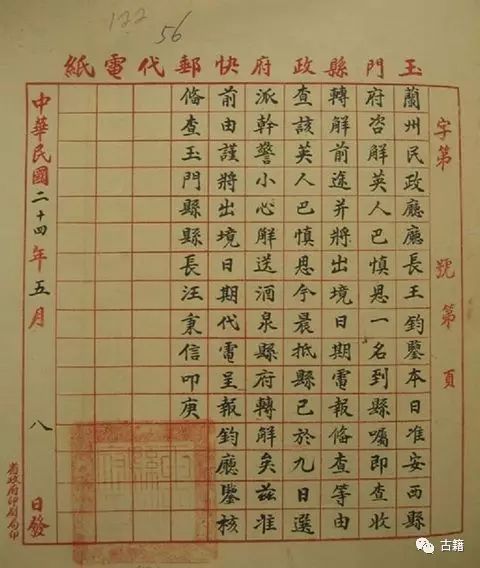 122
56
玉門縣政府快郵代電紙
字第 號第 頁
蘭州民政廳廳長王鈞鑒本日准安西縣
府咨解英人巴慎思一名到縣囑即查收
轉解前途并將出境日期電報俻查等由
查該英人巴慎思今晨抵縣已於九日選
派幹警小心解送酒泉縣府轉解矣茲准
前由謹將出境日期代電呈報鈞廳鑒核
俻查玉門縣縣長汪秉信叩庚
中華民國二十四年五月 八 日發
省政府印刷局印
古籍